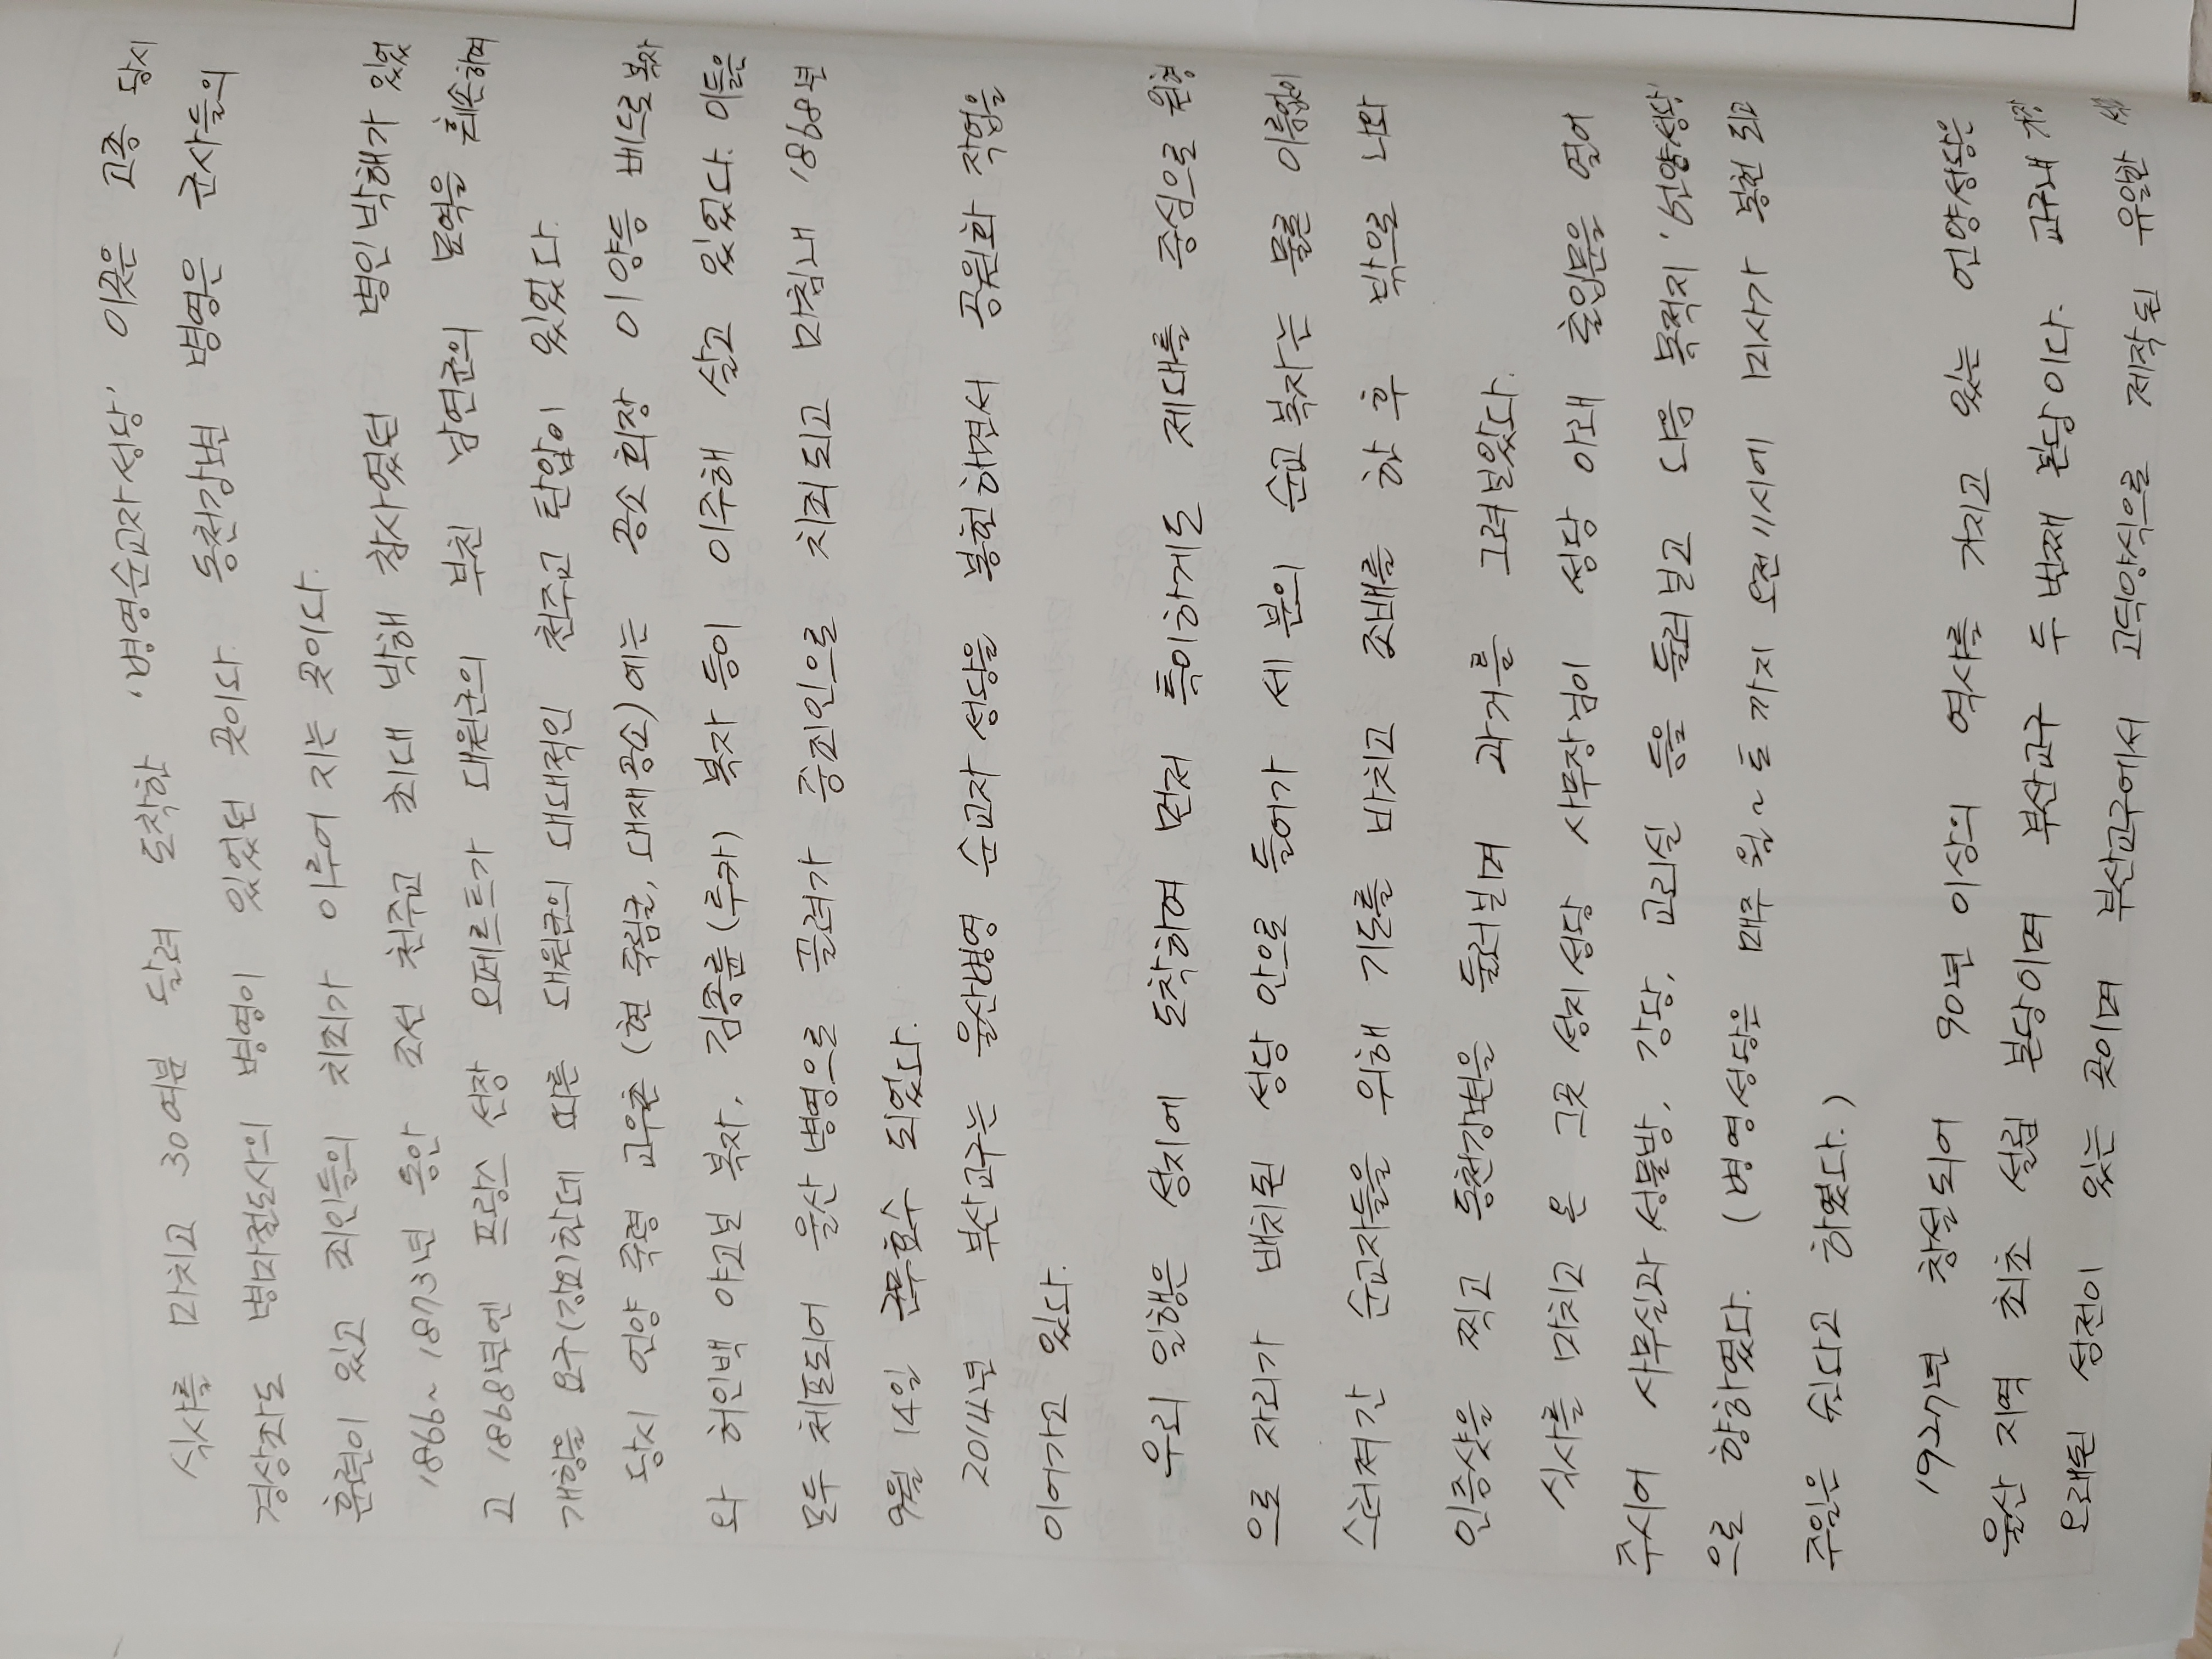 식사를 마치고 30여분 달려 도착한 '병영순교자성당' 이곳은 고종 당시
경상좌도 병마절도사의 병영이 있었던 곳이다. 동천강변 병영은 군사들의
훈련이 있고 죄인들의 처죄가 이루어 지는 곳이다.
1866~1873년 동안 조선 천주교 최대 박해 참사였던 병인박해가 있었
고 1868년엔 프랑스 선장 오페르트가 대원군의 부친 남연군의 묘역을 훼손하며
개항을 요구(강요)한데 따른 대원군의 대대적인 천주교 탄압이 있었다.
당시 언양 죽령 교우촌 (현 죽림굴, 대재공소)에는 공소회장 이양등 베드로복자
와 허인백 야고보 복자, 김종륜(루카) 복자 등이 이주해 살고 있었다. 이들은
모두 체포되어 울산 병영으로 끌려가 중죄인으로 치죄되고 마침내 1868년
9월 14일 군문효수 되었다.
2014년 부산교구는 울산병영 순교자 성당을 봉헌하면서 공원화 작업을
이어가고 있다.
우리 일행은 성지에 도착하여 먼저 특이하게도 제대를 중심으로 원형
으로 자리가 배치된 성당 안으로 들어가 세 분의 순교복자는 물론 이름없이
스러져간 순교자들을 위해 기도를 바치고 조배를 한 후 밖으로 나와
인증샷을 찍고 동천강변을 둘러보며 과거를 그려보았다.
식사를 마치고 온 그곳 성지성당 사무장님이 성당 아래 출입문을 열어
주시어 사무실과 성물방, 강당, 교리실 등을 둘러보고 다음 목적지 '언양성당'
으로 향하였다. (병영성당은 매주 월~토 까지 오전 11시에 미사가 봉헌 되고
주일은 쉰다고 하였다.)
1927년 창설되어 90년 이상의 역사를 가지고 있는 언양성당은
울산 지역 최초 설립 본당이며 부산교구 두 번째 본당이다. 교구내
오래된 성전이 있는 곳이며 부산교구에서 고딕양식으로 제작된 유일한